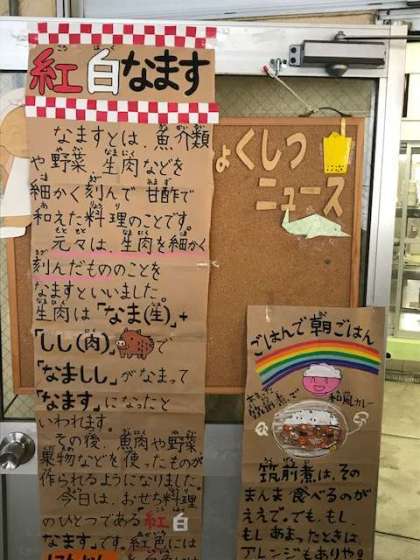 紅白なます
なますとは、魚介類
や野菜、生肉などを
細かく刻んで甘酢で
和えた料理のことです。
元々は、生肉を細かく
刻んだもののことを
なますといいました。
生肉は「なま(生)」+
「しし(肉)」で
「なましし」がなまって
「なます」になったと
いわれます。
その後、魚肉や野菜
果物などを使ったものが
作られるようになりました。
今日は、おせち料理
のひとつである紅白
なます"です。紅色には
ょくしつ
ニュース
ごはんで朝ごはん
筑前煮で和風カレー
筑前煮は、その
まんま食べるのが
ええで。でも、もし、
もしあまったときは、
アレンジもありや!